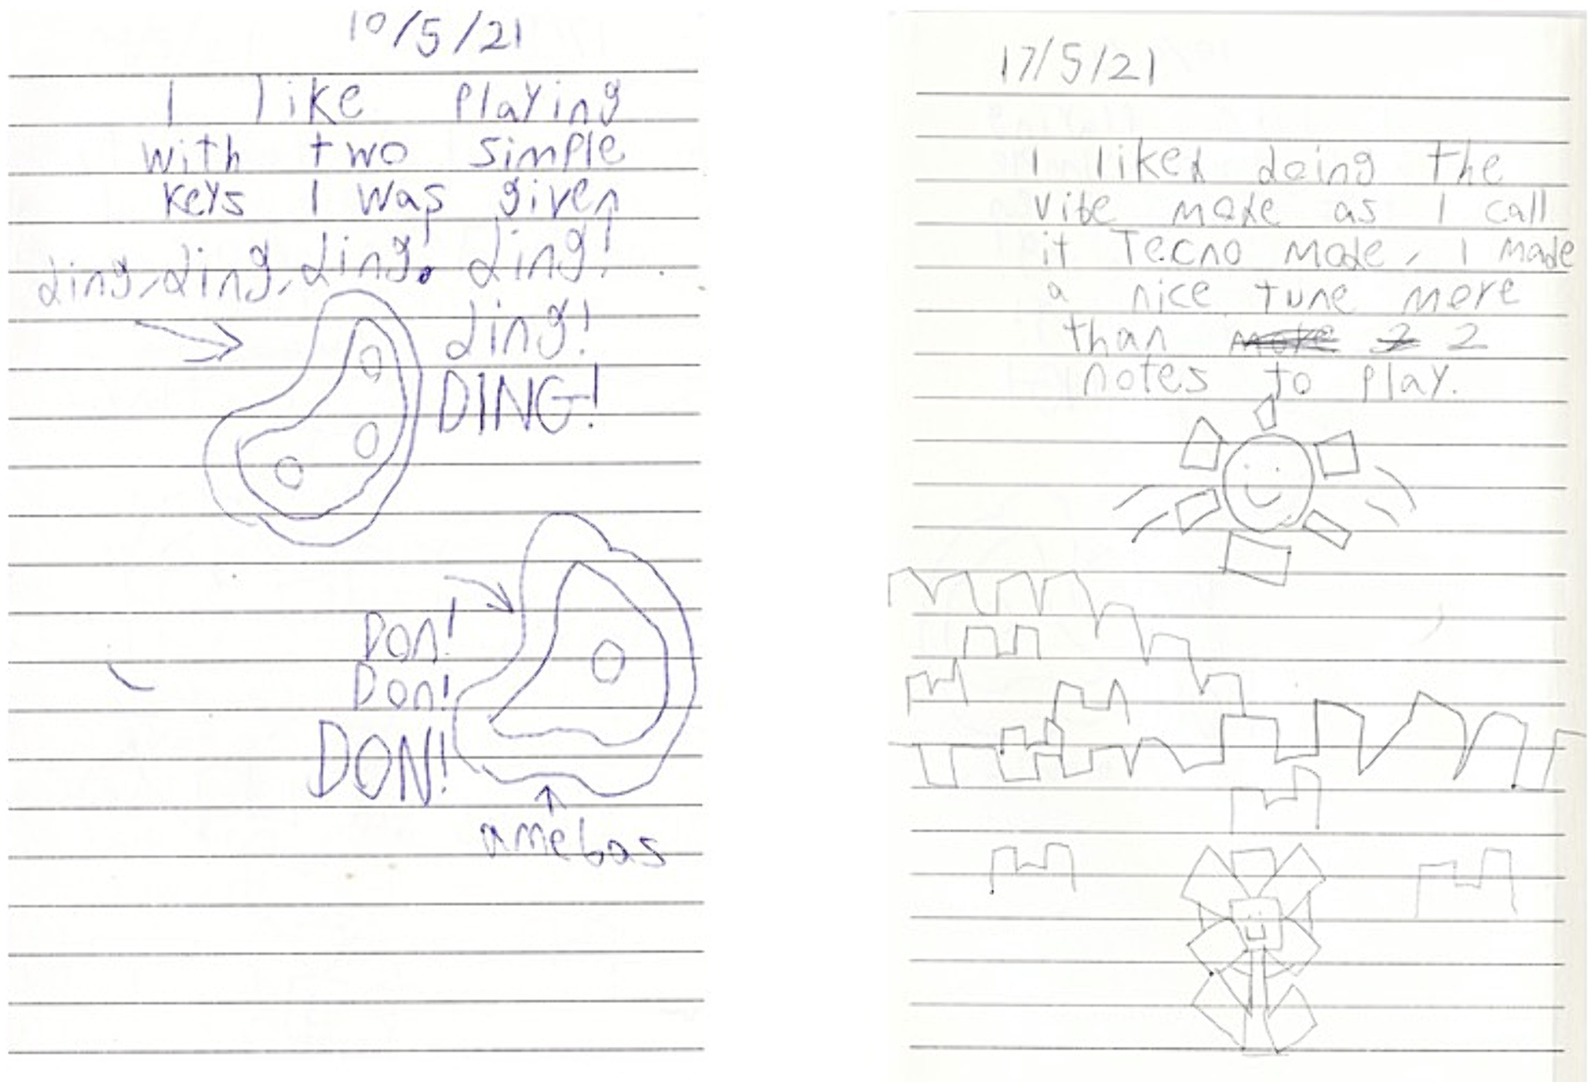 10/5/21
I like playing
with two simple
keys I was given
ding, ding, ding, ding!
ding!
DING!
Don!
Don!
DON!
amebas
17/5/21
I liked doing the
vibe mode as I call
it Tecno mode, I made
a nice tune more
than more 2 2
notes to play.